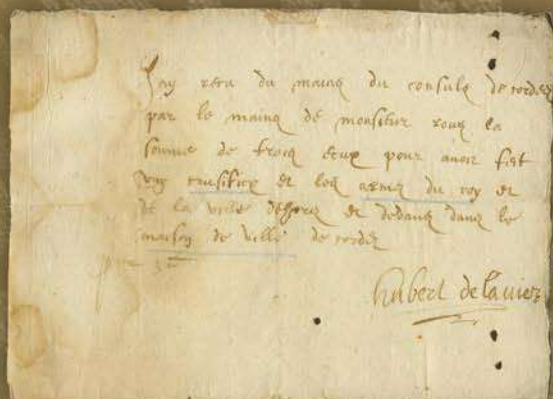 Jay receu du mains du consulz de cordes
par le mains de monsieur roux la
somme de trois escux pour avoir fet
ung crusifice et les armes du roy et
de la ville dehors et dedans dans le
maison de ville de cordes
hubert delauier